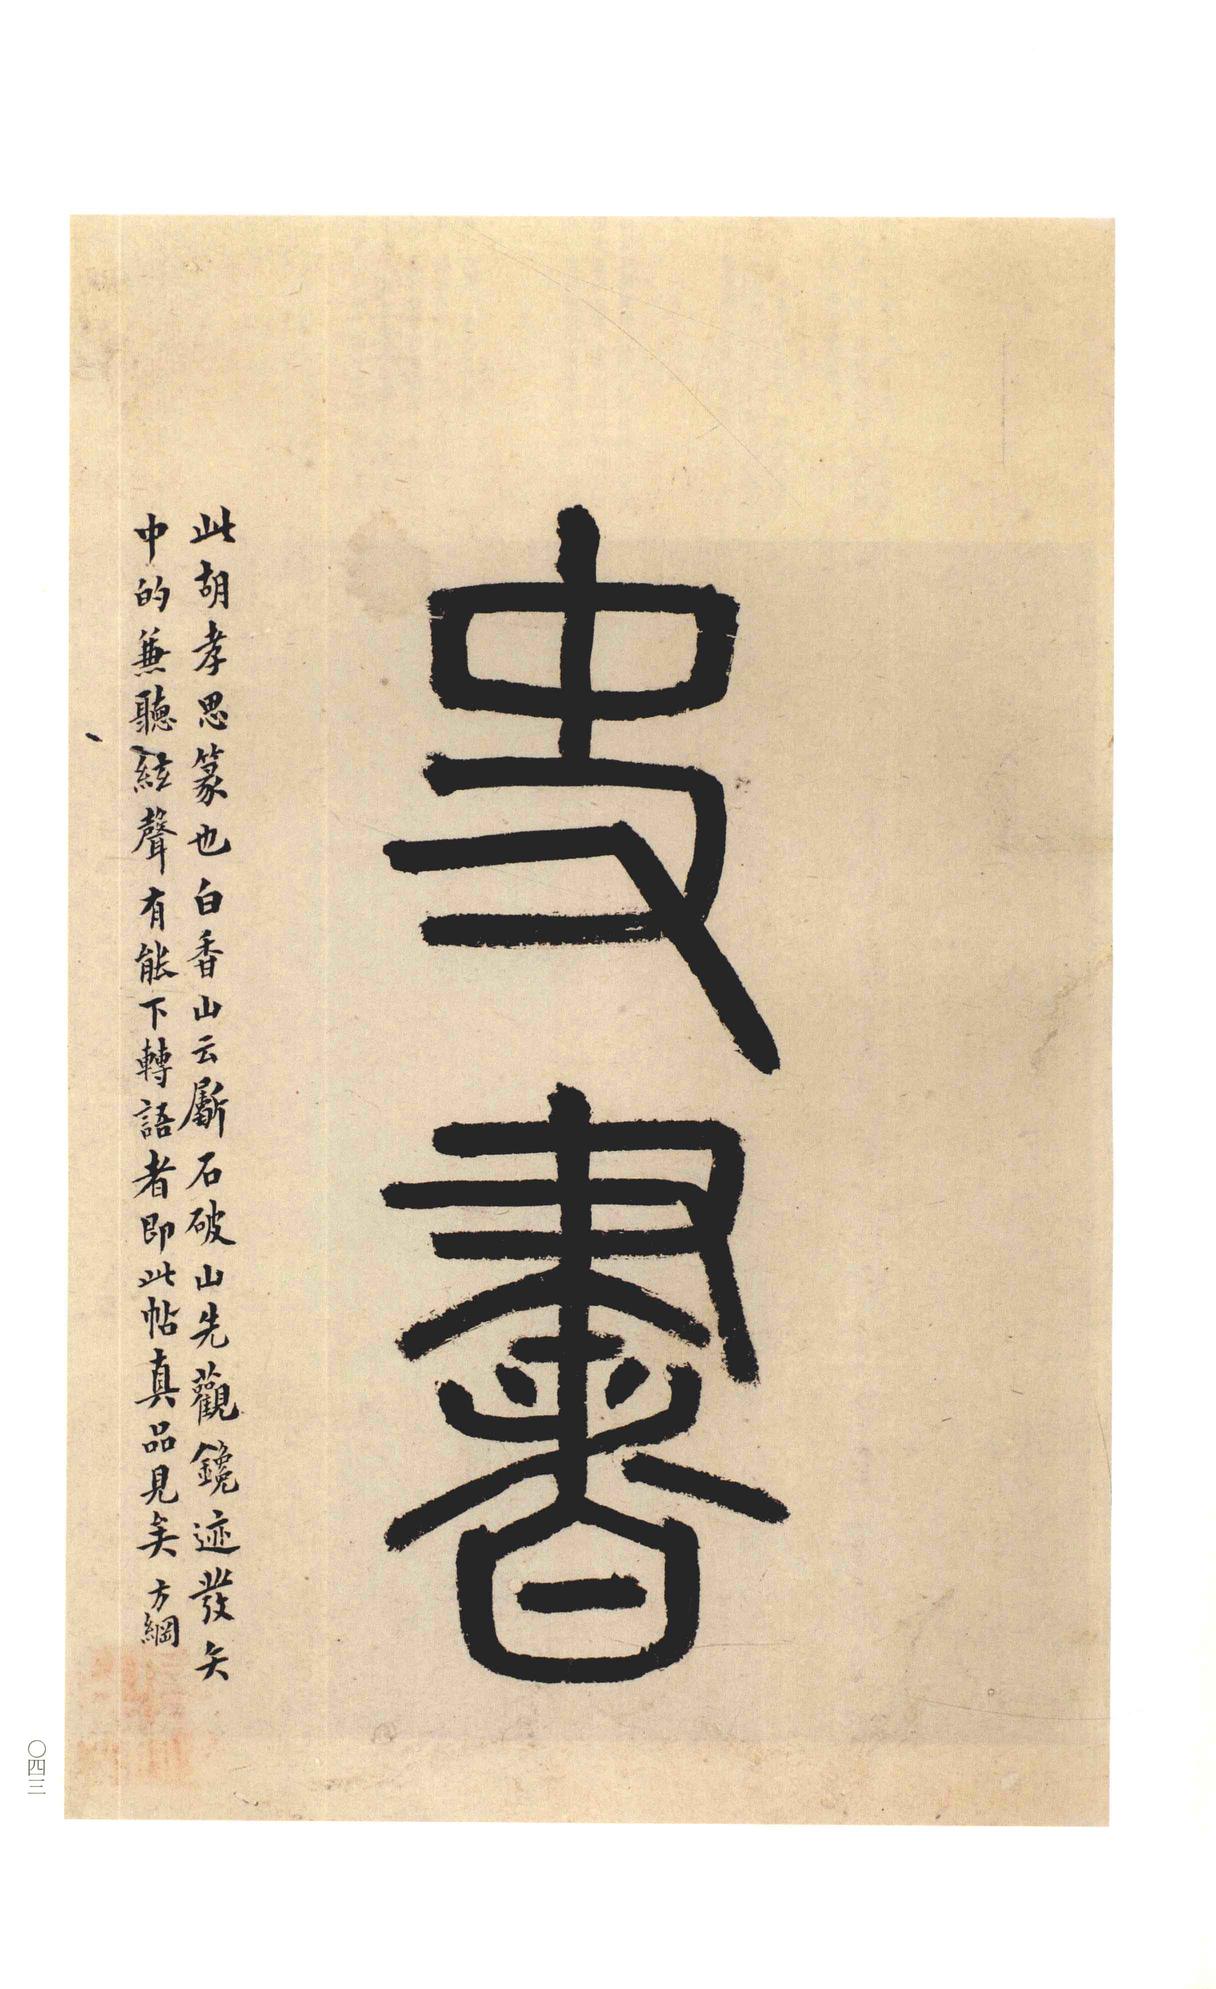 史書
此胡孝思篆也白香山云斸石破山先觀鑱迹發矢
中的兼聽絃聲有能下轉語者即此帖真品見矣方綱
〇四三